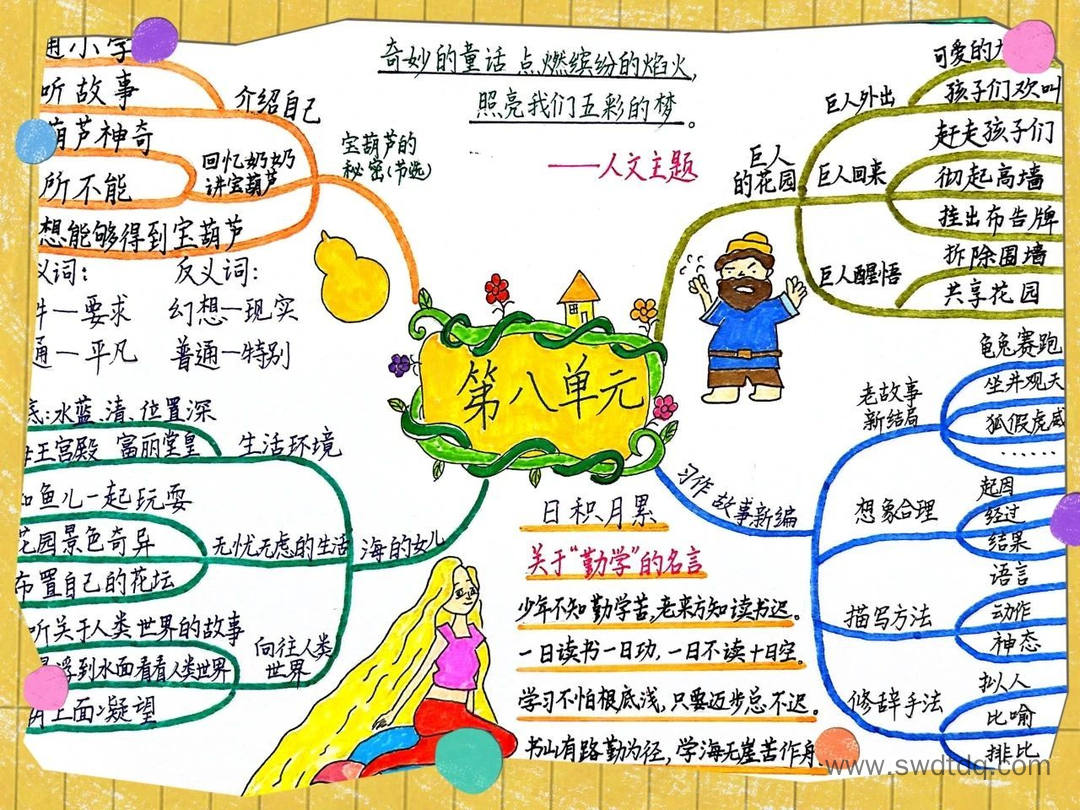 奇妙的童话点燃缤纷的焰火,
照亮我们五彩的梦。
——人文主题
第八单元
宝葫芦的
秘密(节选)
介绍自己
小字
听故事
回忆奶奶
讲宝葫芦
葫芦神奇
所不能
想能够得到宝葫芦
义词:
反义词:
一要求
幻想一现实
通一平凡
普通一特别
巨人
的花园
巨人外出
可爱的
孩子们欢叫
巨人回来
赶走孩子们
彻起高墙
挂出布告牌
巨人醒悟
拆除围墙
共享花园
海的女儿
生活环境
:水蓝、清、位置深
王宫殿 富丽堂皇
无忧无虑的生活
和鱼儿一起玩耍
花园景色奇异
布置自己的花坛
向往人类
世界
听关于人类世界的故事
浮到水面看看人类世界
上面凝望
习作 故事新编
老故事
新结局
龟兔赛跑
坐井观天
狐假虎威
......
想象合理
起因
经过
结果
描写方法
语言
动作
神态
修辞手法
拟人
比喻
排比
日积月累
关于“勤学”的名言
少年不知勤学苦,老来方知读书迟。
一日读书一日功,一日不读十日空。
学习不怕根底浅,只要迈步总不迟。
书山有路勤为径,学海无崖苦作舟
www.swdtdq.com